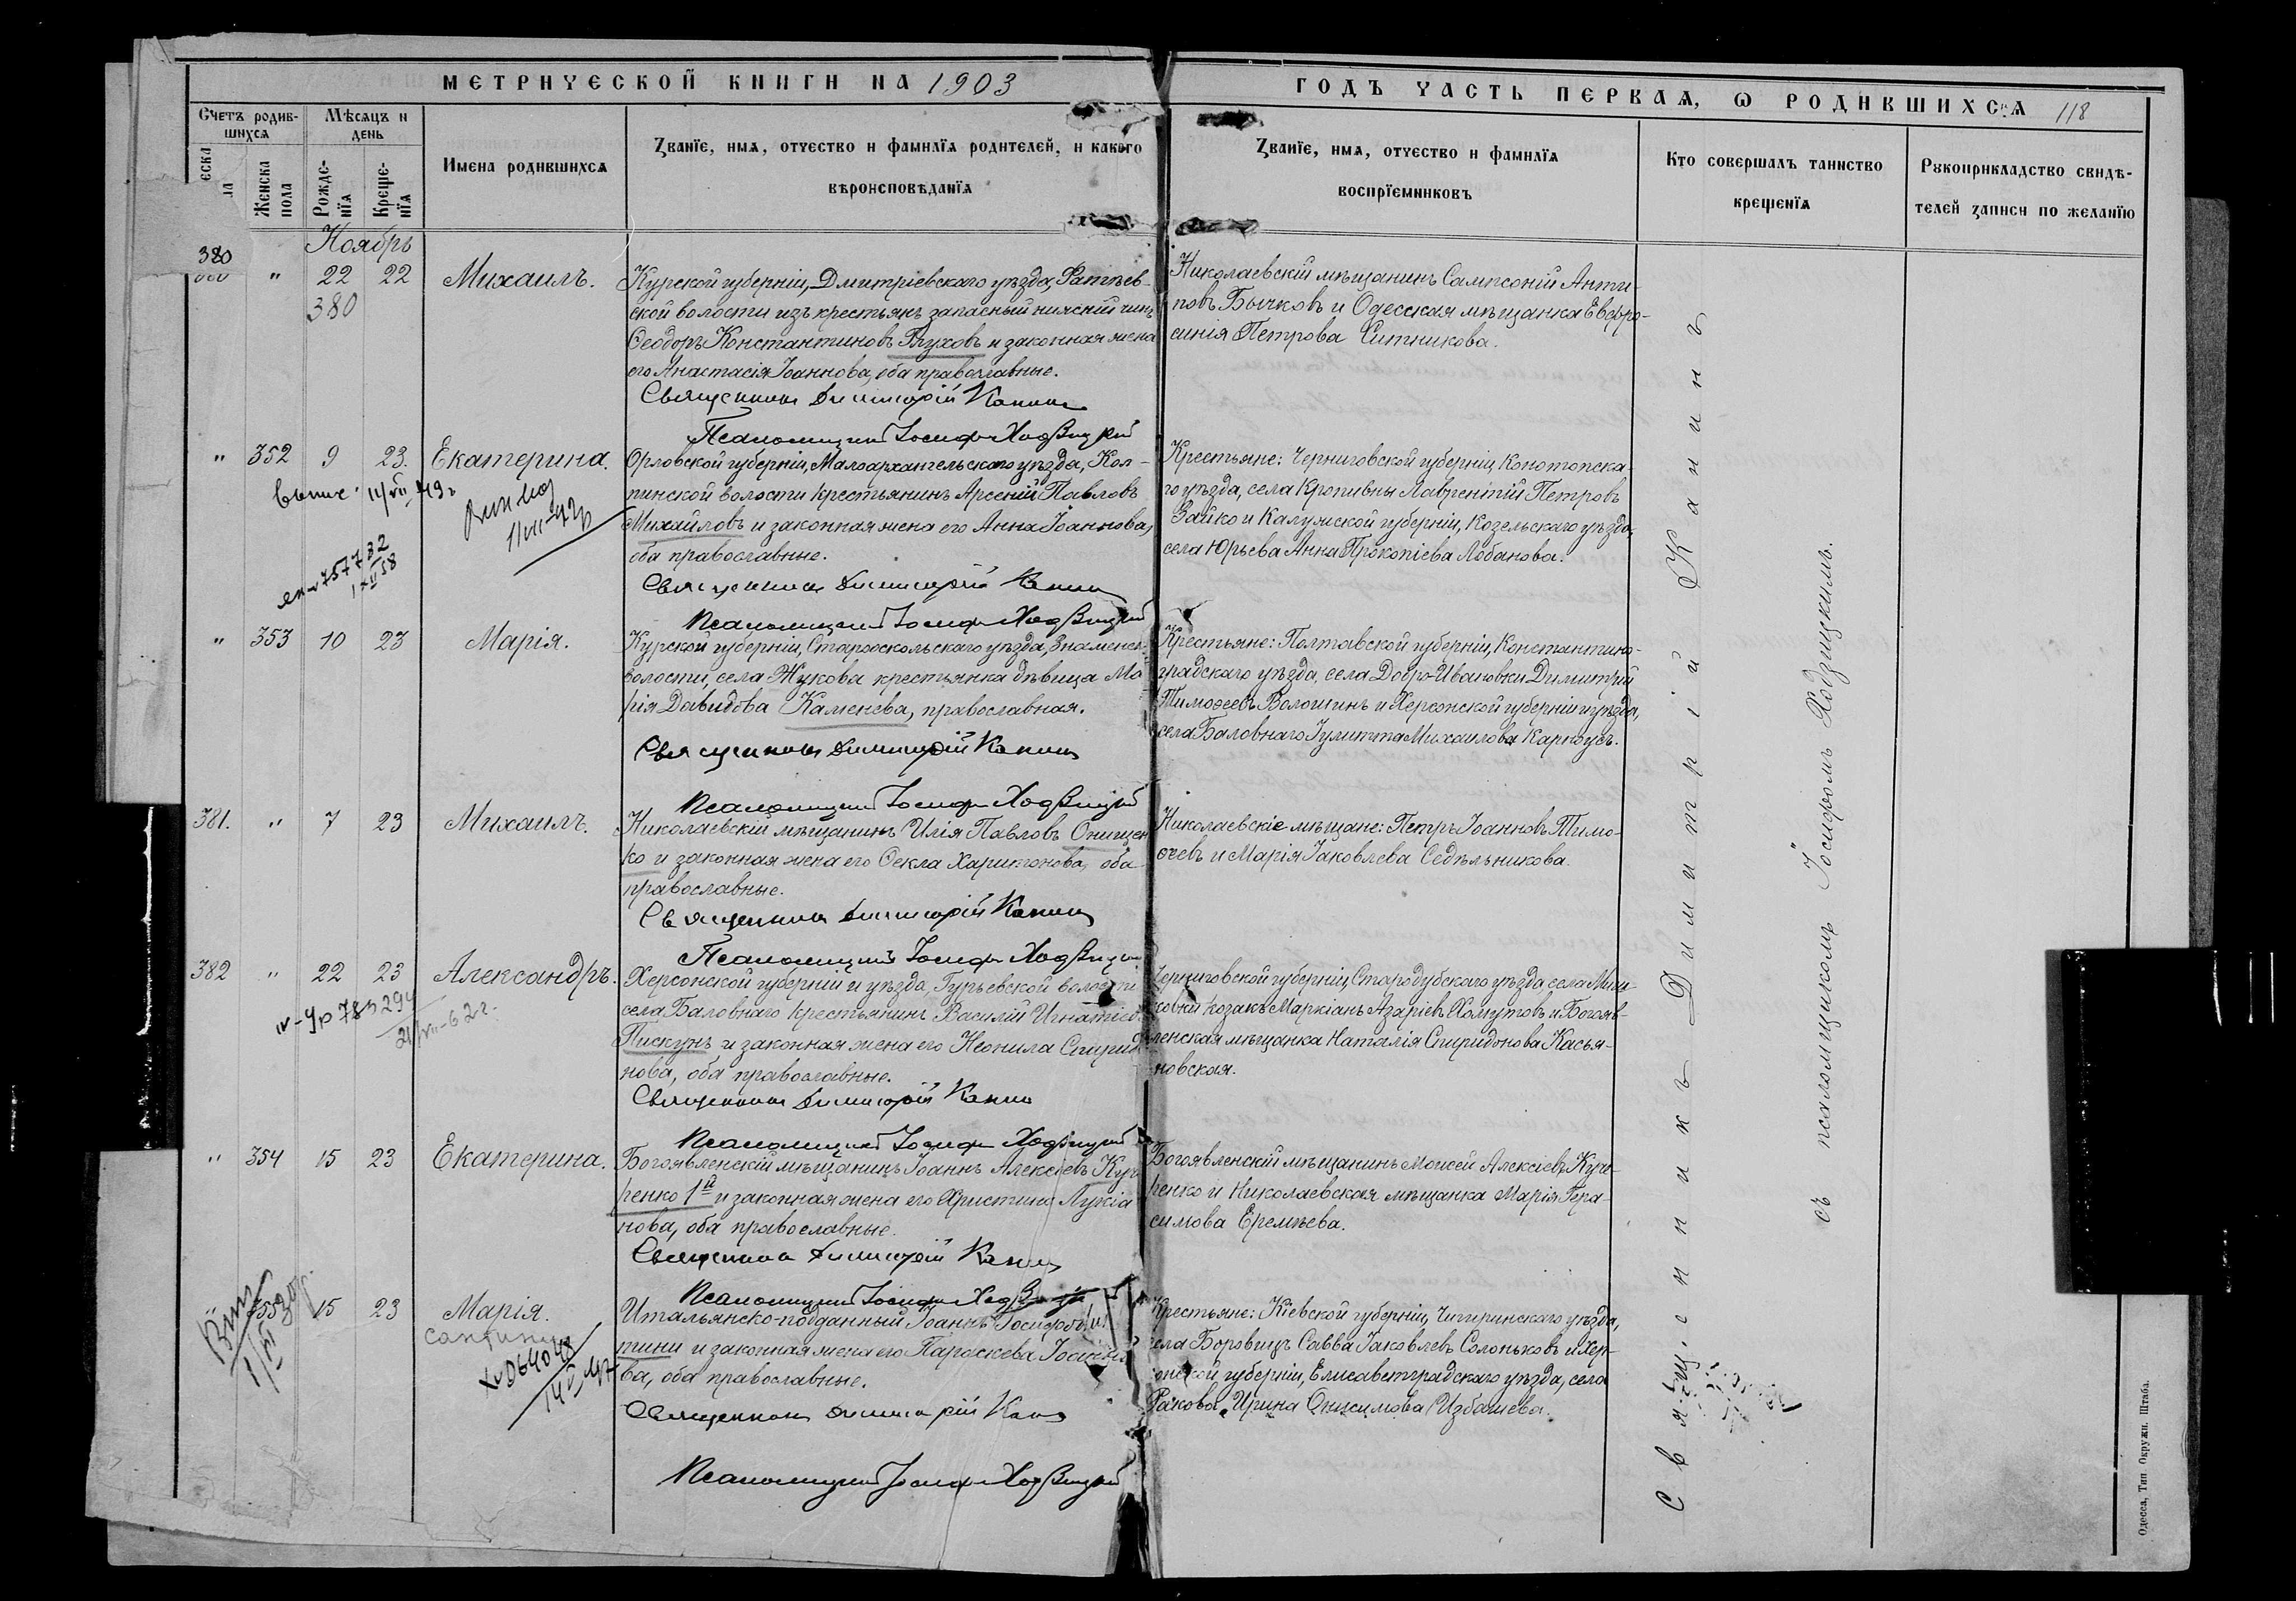 МЕТРИЧЕСКОЙ КНИГИ НА 1903
ГОДЪ ЧАСТЬ ПЕРВАЯ, Ѡ РОДИВШИХСЯ 118
Счетъ родив-
шихся
Мѣсяцъ и
день
Женска
пола
Рожде-
нїя
Креще-
нїя
Имена родившихся
Званїе, имя, отчество и фамилїя родителей, и какого
вѣроисповѣданїя
Званїе, имя, отчество и фамилїя
воспрїемниковъ
Кто совершалъ таинство
крещенїя
Рукоприкладство свидѣ-
телей записи по желанїю
Ноябрь
380 " 22 22 Михаилъ.
380
Курской губерніи, Дмитріевскаго уѣзда, Фатѣев-
ской волости изъ крестьянъ запасный нижній чинъ
Ѳеодоръ Константиновъ Глуховъ и законная жена
его Анастасія Іоаннова, оба православные.
Священникъ Димитрій Канинъ
Псаломщикъ Іосифъ Ходзицкій
Николаевскій мѣщанинъ Сампсоній Анти-
повъ Бычковъ и Одесская мѣщанка Евфро-
синія Петрова Ситникова.
" 352 9 23. Екатерина.
Орловской губерніи, Малоархангельскаго уѣзда, Кол-
пинской волости крестьянинъ Арсеній Павловъ
Михайловъ и законная жена его Анна Іоаннова,
оба православные.
Священникъ Димитрій Канинъ
Псаломщикъ Іосифъ Ходзицкій
Крестьяне: Черниговской губерніи, Конотопска-
го уѣзда, села Кропивны Лаврентій Петровъ
Зайко и Калужской губерніи, Козельскаго уѣзда,
села Юрьева Анна Прокопіева Лобанова.
" 353 10 23 Марія.
Курской губерніи, Старооскольскаго уѣзда, Знаменск.
волости, села Жукова крестьянка дѣвица Ма-
рія Давидова Каменева, православная.
Священникъ Димитрій Канинъ
Псаломщикъ Іосифъ Ходзицкій
Крестьяне: Полтавской губерніи, Константино-
градскаго уѣзда, села Добро-Ивановки Димитрій
Тимоѳеевъ Волошинъ и Херсонской губерніи и уѣзда,
села Баловнаго Іулитта Михаилова Карноусъ.
381. " 7 23 Михаилъ.
Николаевскій мѣщанинъ Илія Павловъ Онищен-
ко и законная жена его Ѳекла Харитонова, оба
православные.
Священникъ Димитрій Канинъ
Псаломщикъ Іосифъ Ходзицкій
Николаевскіе мѣщане: Петръ Іоанновъ Тимо-
ѳеевъ и Марія Іаковлева Седѣльникова.
382 " 22 23 Александръ.
Херсонской губерніи и уѣзда, Гурьевской волости
села Баловнаго крестьянинъ Василій Игнатіевъ
Пискунъ и законная жена его Неонила Спиридо-
нова, оба православные.
Священникъ Димитрій Канинъ
Псаломщикъ Іосифъ Ходзицкій
Черниговской губерніи, Стародубскаго уѣзда, села Миш-
ковки козакъ Маркіанъ Азаріевъ Хомутовъ и Богояв-
ленская мѣщанка Наталія Спиридонова Касья-
новская.
" 354 15 23 Екатерина.
Богоявленскій мѣщанинъ Іоаннъ Алексіевъ Куче-
ренко 1й и законная жена его Христина Лукіа-
нова, оба православные.
Священникъ Димитрій Канинъ
Псаломщикъ Іосифъ Ходзицкій
Богоявленскій мѣщанинъ Моисей Алексіевъ Куче-
ренко и Николаевская мѣщанка Марія Гера-
симова Еремѣева.
" 355 15 23 Марія.
Итальянско-подданный Іоаннъ Іосифовъ
тини и законная жена его Параскева Іоанно-
ва, оба православные.
Священникъ Димитрій Канинъ
Псаломщикъ Іосифъ Ходзицкій
Крестьяне: Кіевской губерніи, Чигиринскаго уѣзда,
села Боровицъ Савва Іаковлевъ Солоньковъ и Хер-
сонской губерніи, Елисаветградскаго уѣзда, села
Ракова Ирина Онисимова Избашева.
Священникъ Димитрій Канинъ
съ псаломщикомъ Іосифомъ Ходзицкимъ.
Одесса, Тип. Окружн. Штаба.